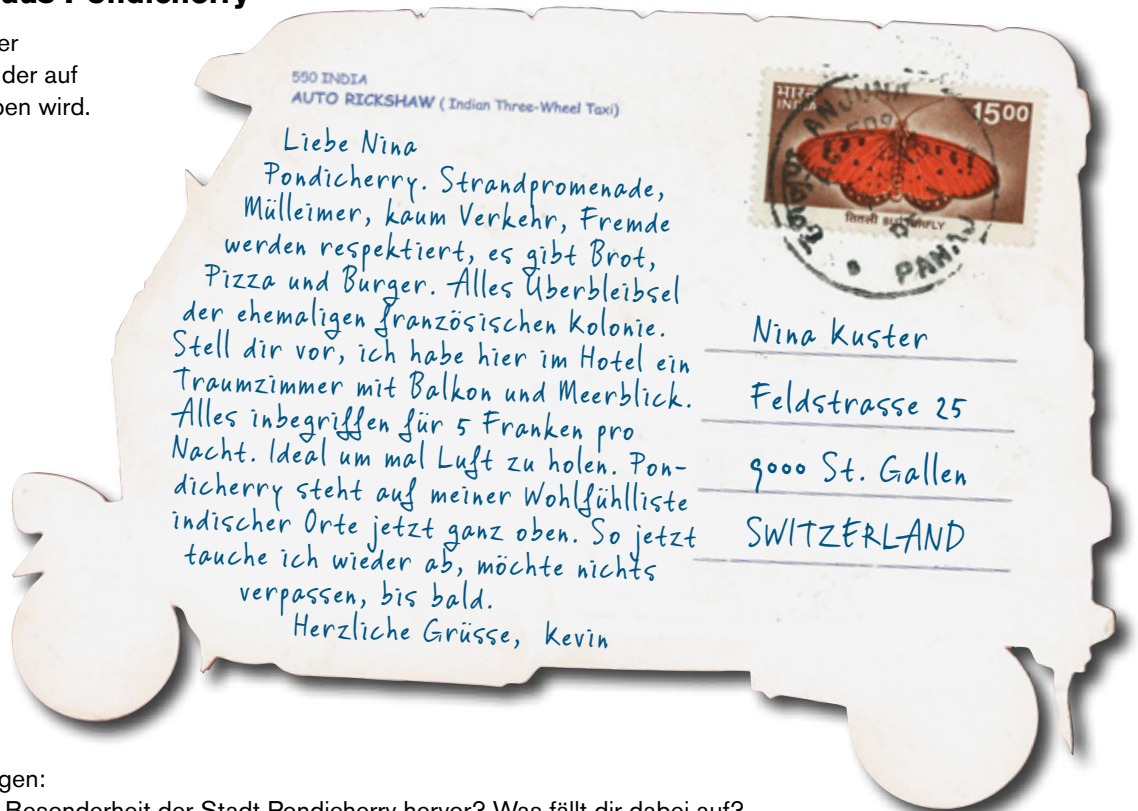 aus Pondicherry
er
der auf
ben wird.
550 INDIA
AUTO RICKSHAW ( Indian Three-Wheel Taxi)
Liebe Nina
Pondicherry. Strandpromenade,
Mülleimer, kaum Verkehr, Fremde
werden respektiert, es gibt Brot,
Pizza und Burger. Alles Überbleibsel
der ehemaligen französischen Kolonie.
Stell dir vor, ich habe hier im Hotel ein
Traumzimmer mit Balkon und Meerblick.
Alles inbegriffen für 5 Franken pro
Nacht. Ideal um mal Luft zu holen. Pon-
dicherry steht auf meiner Wohlfühlliste
indischer Orte jetzt ganz oben. So jetzt
tauche ich wieder ab, möchte nichts
verpassen, bis bald.
Herzliche Grüsse, Kevin
भारत
INDIA
1500
तितली BUTTERFLY
ANJUNA
Nina Kuster
Feldstrasse 25
9000 St. Gallen
SWITZERLAND
gen:
Besonderheit der Stadt Pondicherry hervor? Was fällt dir dabei auf?